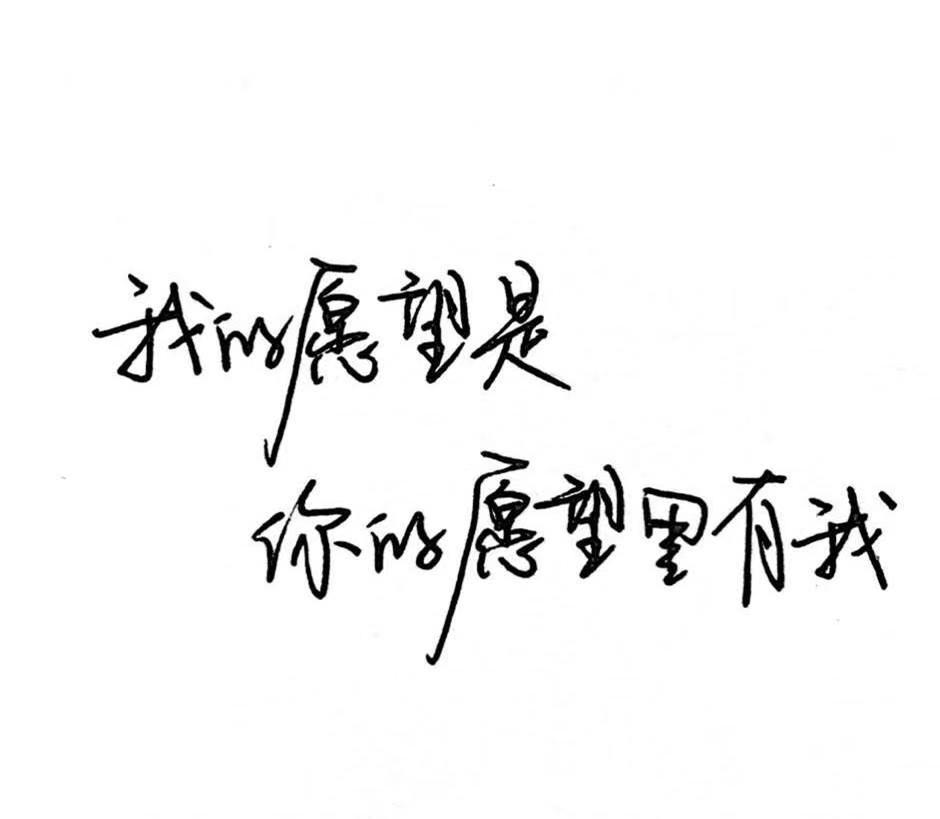 我的愿望是
你的愿望里有我